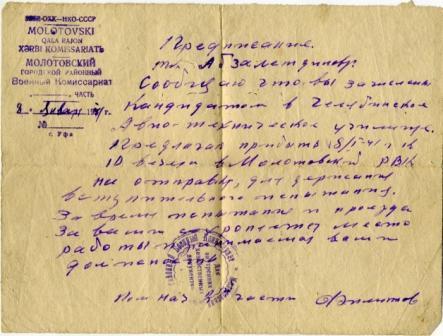 НКО-СССР
MOLOTOVSKI
QALA RAJON
XƏRBI KOMISSARIATЬ
МОЛОТОВСКИЙ
ГОРОДСКОЙ РАЙОННЫЙ
Военный Комиссариат
ЧАСТЬ
8 января 1941 г.
№
г. Уфа
Предписание.
тов. Абзалетдинову
Сообщаю что вы зачислены
кандидатом в Челябинское
Авио-техническое училище.
Предлагаю прибыть 8/I-41 г к
10 вечера в Молотовский РВК
на отправку, для держания
вступительного испытания.
За время испытания и проезда
За вами место
работы и вами
должность
Пом нач части Филиппов